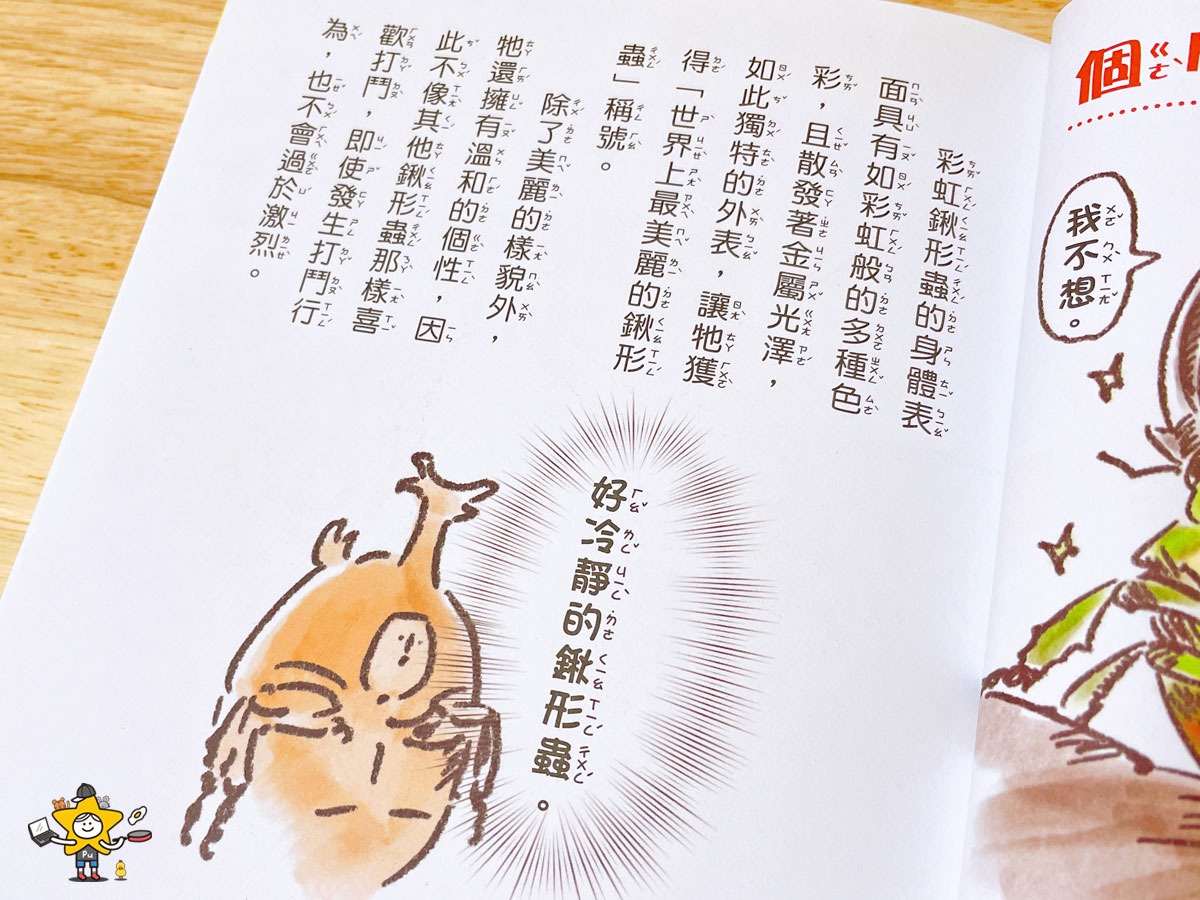 個
我不想。
彩虹鍬形蟲的身體表
面具有如彩虹般的多種色
彩，且散發著金屬光澤，
如此獨特的外表，讓牠獲
得「世界上最美麗的鍬形
蟲」稱號。
除了美麗的樣貌外，
牠還擁有溫和的個性，因
此不像其他鍬形蟲那樣喜
歡打鬥，即使發生打鬥行
為，也不會過於激烈。
好冷靜的鍬形蟲。
Pu